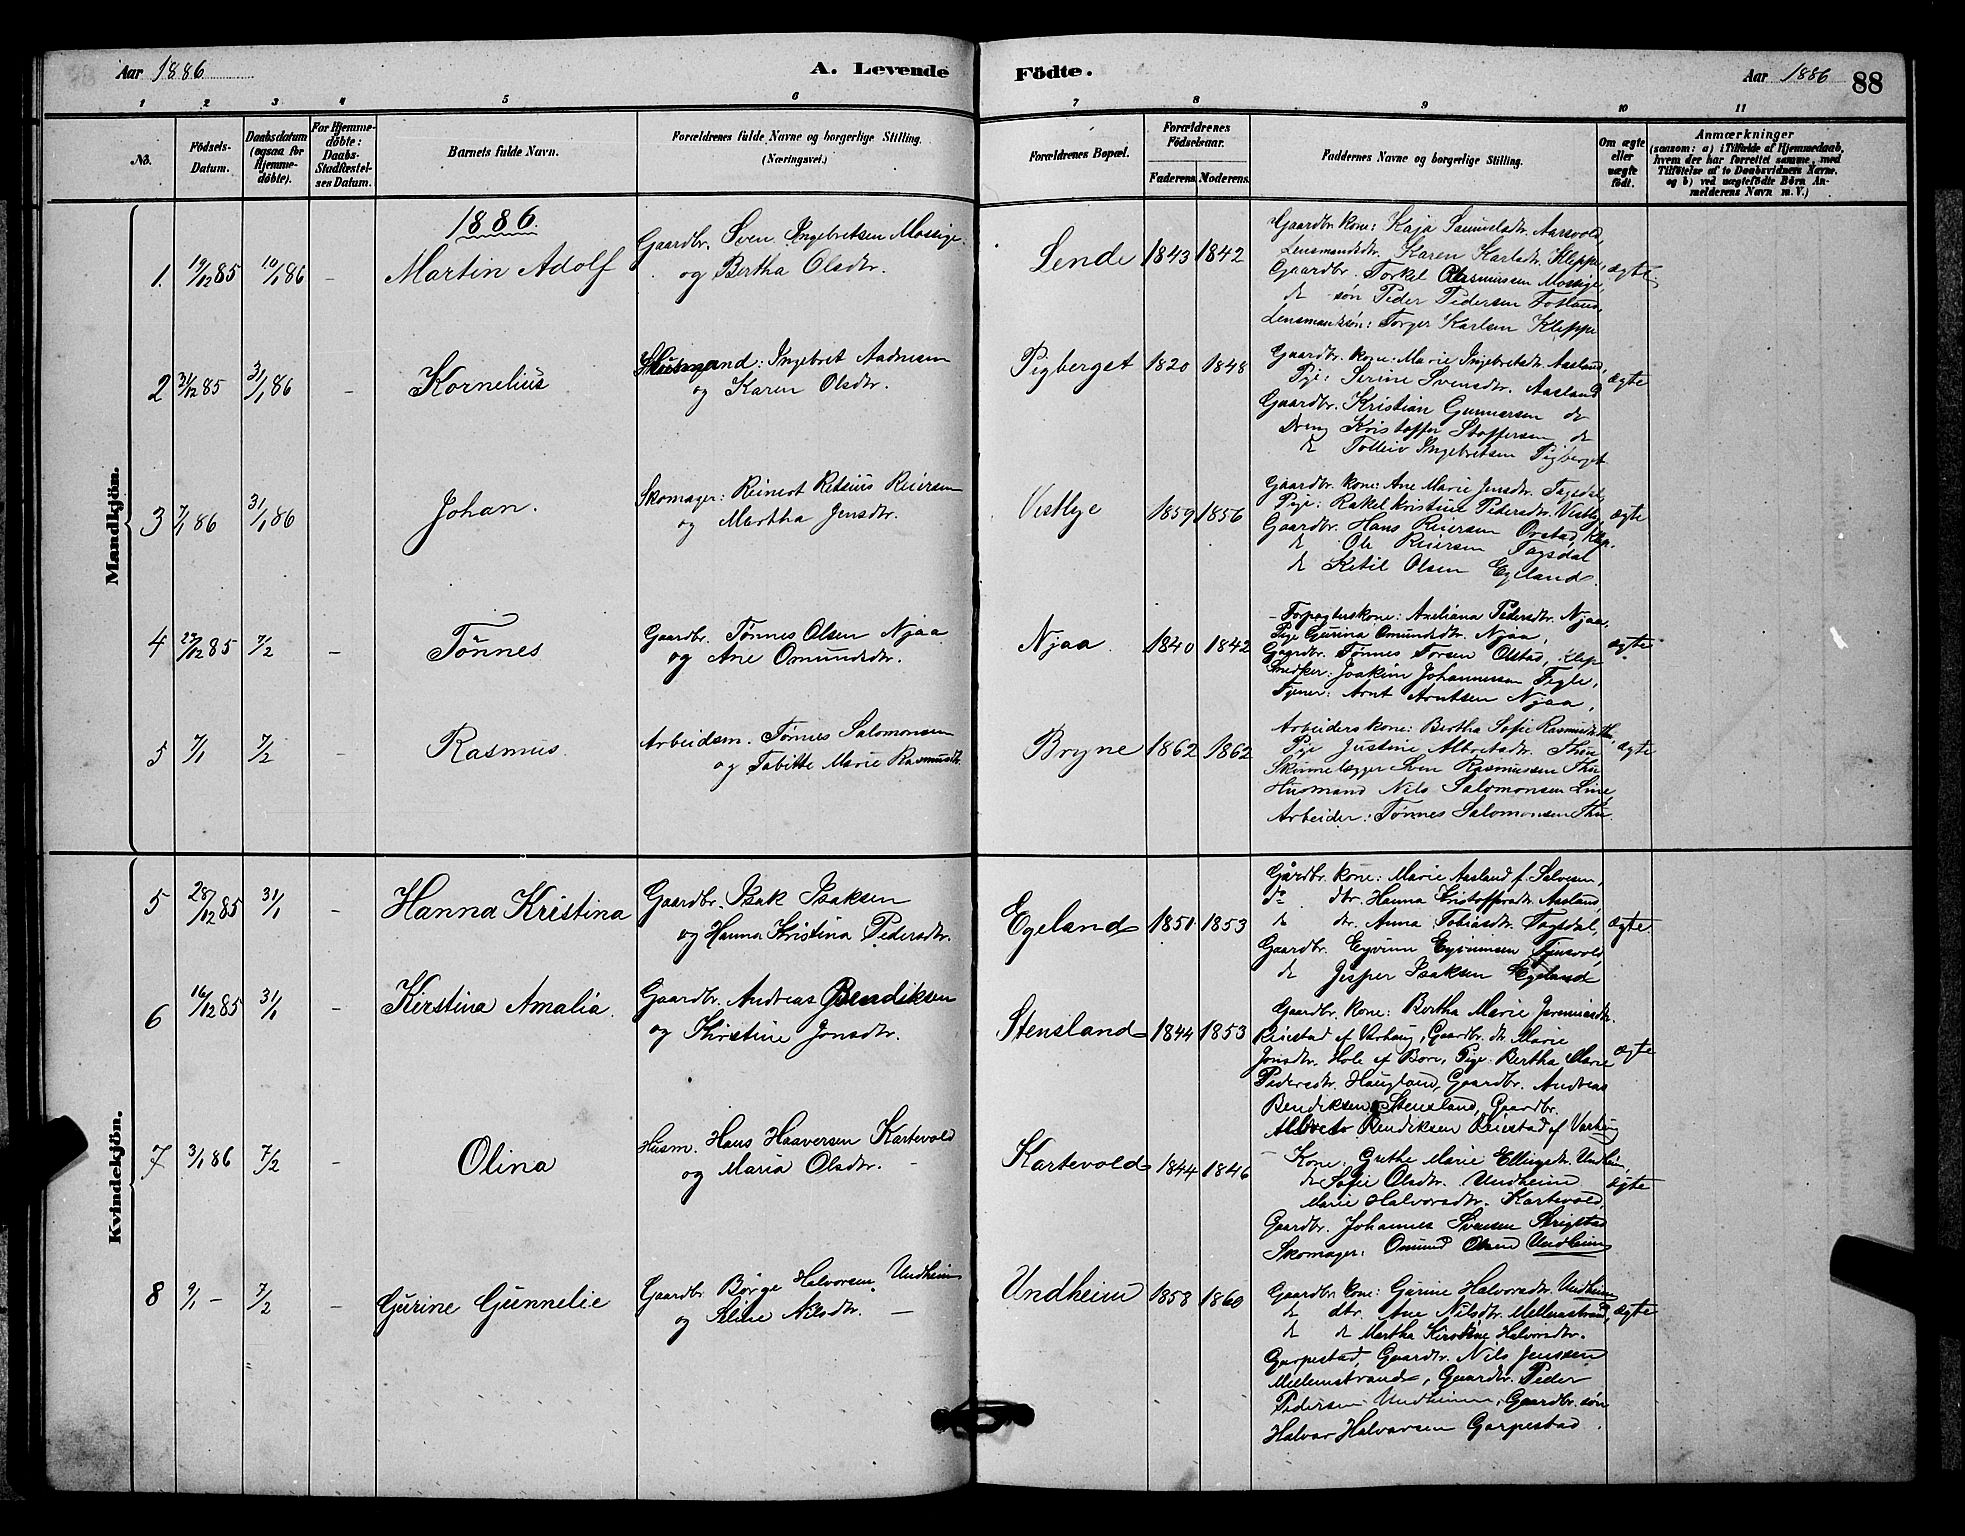 Aar 1886
A. Levende
Fødte.
Aar 1886
88
1
2
3
4
5
6
7
8
9
10
11
No.
Fødsels-
Datum.
Daabsdatum
(ogsaa for
Hjemme-
døbte).
For Hjemme-
døbte:
Daabs-
Stadfæstel-
ses Datum.
Barnets fulde Navn.
Forældrenes fulde Navne og borgerlige Stilling.
(Næringsvei.)
Forældrenes Bopæl.
Forældrenes
Fødselsaar.
Faderens
Moderens
Faddernes Navne og borgerlige Stilling.
Om ægte
eller
uægte
født.
Anmærkninger
(saasom: a) i Tilfælde af Hjemmedaab,
hvem der har forrettet samme, med
Tilføielse af to Daabsvidners Navne,
og b) ved uægtefødte Børn An-
melderens Navn m. V.)
Mandkjøn.
1886.
1. 19/12 85 10/1 86 - Martin Adolf
Gaardbr. Sven Ingebretsen Mossige
og Bertha Olsdtr.
Lende 1843 1842
Gaardbr. kone: Kaja Samuelsdtr. Aarsvold,
Lensmandsdtr. Karen Karlsdtr. Kleppe,
Gaardbr. Torkel Rasmussen Mossige,
do søn Peder Pedersen Fotland,
Lensmandssøn: Torger Karlsen Kleppe
ægte.
2 31/12 85 31/1 86 - Kornelius
Husmand: Ingebret Aadnesen
og Karen Olsdtr.
Pigberget 1820 1848
Gaardbr. kone: Marie Ingebretsdtr. Aasland,
Pige: Serine Svensdtr. Aasland
Gaardbr. Kristian Gunnarsen do
Dreng Kristoffer Stoffersen do
do Tolleiv Ingebretsen Pigberget
ægte
3 7/1 86 31/1 86 Johan.
Skomager: Reinert Retsius Reiersen
og Martha Jensdtr.
Vestlye 1859 1856
Gaardbr. kone: Ane Marie Jensdtr. Tagsdal,
Pige: Rakel Kristine Pedersdtr. Vestly,
Gaardbr. Hans Reiersen Orstad, Klep.
do Ole Reiersen Tagsdal
do Ketil Olsen Egeland.
ægte
4 29/12 85 7/2 - Tönnes
Gaardbr. Tönnes Olsen Njaa
og Ane Omundsdtr.
Njaa. 1840 1842
- Forpagterskone: Aneliana Pedersdtr. Njaa,
Pige Gurina Omundsdtr. Njaa,
Gaardbr. Tönnes Torsen Olstad, Klep
Snedker: Joakim Johannessen Tegle,
Tjener: Arnt Arntsen Njaa,
ægte
5 7/1 7/2 - Rasmus.
Arbeidsm. Tönnes Salomonsen
og Tabitte Marie Rasmusdtr.
Bryne 1862 1862
Arbeiderskone: Bertha Sofie Rasmusdtr. Thu,
Pige Justine Albretsdtr. Thu
Skinnelægger Sven Rasmussen Thu
Husmand Nils Salomonsen Line,
Arbeider: Tönnes Salomonsen Thu.
ægte
Kvindekjøn.
5 28/12 85 31/1 - Hanna Kristina
Gaardbr. Isak Isaksen
og Hanna Kristina Pedersdtr.
Egeland 1851 1853
Gårdbr. kone: Marie Aasland f. Salvesen,
do dtr. Hanna Kristoffersdtr. Aasland,
do dr. Anna Tobiasdtr. Tagsdal,
Gaardbr. Eyvinn Eyvinnsen Tjensvold,
do Jesper Isaksen Egeland
ægte
6 16/12 85 31/1 - Kirstina Amalia.
Gaardbr. Andreas Bendiksen
og Khristine Jonsdtr.
Stensland 1844 1853
Gaardbr. kone: Bertha Marie Jeremiasdtr.
Reiestad af Varhaug, Gaardbr. do Marie
Jonsdtr. Hole af Bore, Pige: Bertha Marie
Pedersdtr. Haugland, Gaardbr. Andreas
Bendiksen Stensland, Gaardbr.
Albreto Bendiksen Reiestad af Varhaug
ægte
7 3/1 86 7/2 - Olina
Husm. Hans Haaversen Kartevold
og Maria Olsdtr. -
Kartevold 1844 1846
- Kone: Grethe Marie Ellingsdtr. Undheim,
do Sofie Olsdtr. Undheim
Marie Halvorsdtr. Kartevold,
Gaardbr. Johannes Svensen Serigstad
Skomager: Omund Olsen Undheim
ægte
8 9/1 - 7/2 - Gurine Gunnelie
Gaardbr. Børge Halvorsen Undheim
og Seline Nilsdtr. -
Undheim 1858 1860
Gaardbr. kone: Gurine Halvorsdtr. Undheim
do dtr. Ane Nilsdtr. Mellemstrand,
do do Martha Kirstine Halvorsdtr.
Garpestad, Gaardbr. Nils Jenssen
Mellemstrand, Gaardbr. Peder
Pedersen Undheim, Gaardbr. søn
Halvar Halvarsen Garpestad.
ægte